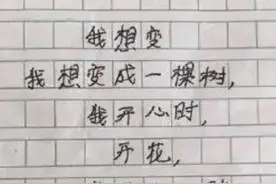 我想变
我想变成一棵树，
我开心时，
开花，